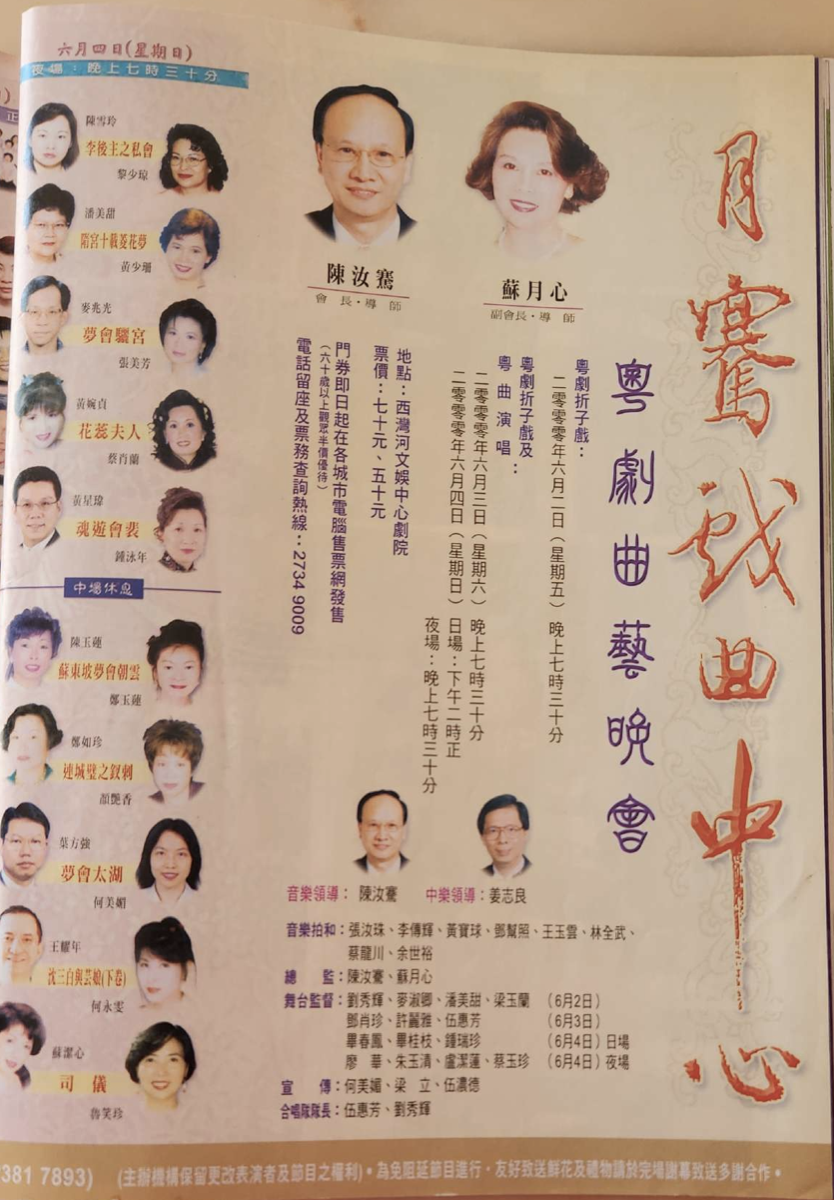 月騫戲曲中心
粵劇曲藝晚會
陳汝騫
會長·導師
蘇月心
副會長·導師
粵劇折子戲：
二零零零年六月二日（星期五）晚上七時三十分
粵劇折子戲及
粵曲演唱：
二零零零年六月三日（星期六）晚上七時三十分
二零零零年六月四日（星期日）日場：下午二時正
夜場：晚上七時三十分
地點：西灣河文娛中心劇院
票價：七十元、五十元
門券即日起在各城市電腦售票網發售
（六十歲以上觀眾半價優待）
電話留座及票務查詢熱線：2734 9009
六月四日(星期日)
夜場：晚上七時三十分
陳雪玲
李後主之私會
黎少琼
潘美甜
隋宮十載菱花夢
黃少珊
麥兆光
夢會驪宮
張美芳
黃婉貞
花蕊夫人
蔡肖蘭
黃星瑋
魂遊會裴
鍾泳年
中場休息
陳玉蓮
蘇東坡夢會朝雲
鄭玉蓮
鄭如珍
連城璧之釵刺
顏艷香
葉方強
夢會太湖
何美媚
王耀年
沈三白與芸娘(下卷)
何永雯
蘇潔心
司儀
魯笑珍
音樂領導：陳汝騫
中樂領導：姜志良
音樂拍和：張汝珠、李傳輝、黃寶球、鄧幫照、王玉雲、林全武、
蔡龍川、余世裕
總監：陳汝騫、蘇月心
舞台監督：劉秀輝、麥淑卿、潘美甜、梁玉蘭（6月2日）
鄧肖珍、許麗雅、伍惠芳（6月3日）
畢春鳳、畢桂枝、鍾瑞珍（6月4日）日場
廖華、朱玉清、盧潔蓮、蔡玉珍（6月4日）夜場
宣傳：何美媚、梁立、伍濃德
合唱隊隊長：伍惠芳、劉秀輝
381 7893) (主辦機構保留更改表演者及節目之權利)·為免阻延節目進行·友好致送鮮花及禮物請於完場謝幕致送多謝合作·